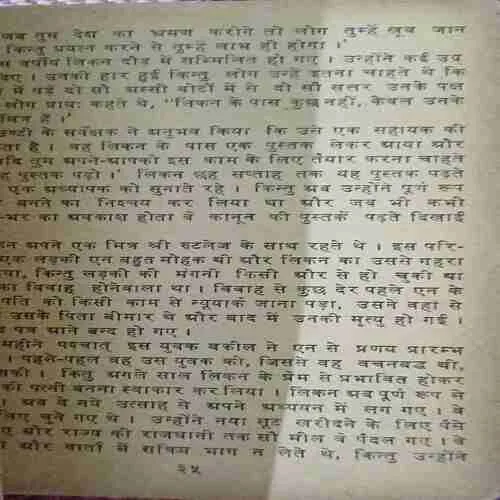 जब तुम देश का भ्रमण करोगे तो लोग तुम्हें खूब जान
किन्तु प्रयत्न करने से तुम्हें लाभ ही होगा ।'
वर्षीय लिंकन दौड़ में सम्मिलित हो गए । उन्होंने कई उप
दिए । उनकी हार हुई किन्तु लोग उन्हें इतना चाहते थे कि
में पड़े दो सौ अस्सी वोटों में से दो सौ सत्तर उनके पक्ष
लोग प्रायः कहते थे, "लिंकन के पास कुछ नहीं, केवल उनके
मित्र हैं ।'
के सर्वेक्षक ने अनुभव किया कि उसे एक सहायक की
ता है । वह लिंकन के पास एक पुस्तक लेकर आया और
यदि तुम अपने-आपको इस काम के लिए तैयार करना चाहते
पुस्तक पढ़ो ।' लिंकन छह सप्ताह तक यह पुस्तक पढ़ते
एक अध्यापक को सुनाते रहे । किन्तु अब उन्होंने पूर्ण रूप
बनने का निश्चय कर लिया था और जब भी कभी
-भर का अवकाश होता वे कानून की पुस्तकें पढ़ते दिखाई
अपने एक मित्र श्री रटलेज के साथ रहते थे । इस परि-
एक लड़की एन बहुत मोहक थी और लिंकन का उससे गहरा
किन्तु लड़की की मंगनी किसी और से हो चुकी थी
का विवाह होनेवाला था । विवाह से कुछ देर पहले एन के
पति को किसी काम से न्यूयार्क जाना पड़ा, उसने वहां से
उसके पिता बीमार थे और बाद में उनकी मृत्यु हो गई ।
पत्र आने बन्द हो गए ।
महीने पश्चात् इस युवक वकील ने एन से प्रणय प्रारम्भ
। पहले-पहल वह उस युवक को, जिससे वह वचनबद्ध थी,
सकी । किंतु अगले साल लिंकन के प्रेम से प्रभावित होकर
की पत्नी बनना स्वीकार कर लिया । लिंकन अब पूर्ण रूप से
। अब वे नये उत्साह से अपने अध्ययन में लग गए । वे
लिए चुने गए थे । उन्होंने नया सूट खरीदने के लिए पैसे
और राज्य की राजधानी तक सौ मील वे पैदल गए । वे
और वार्ता में सक्रिय भाग न लेते थे, किन्तु उन्होंने
२५